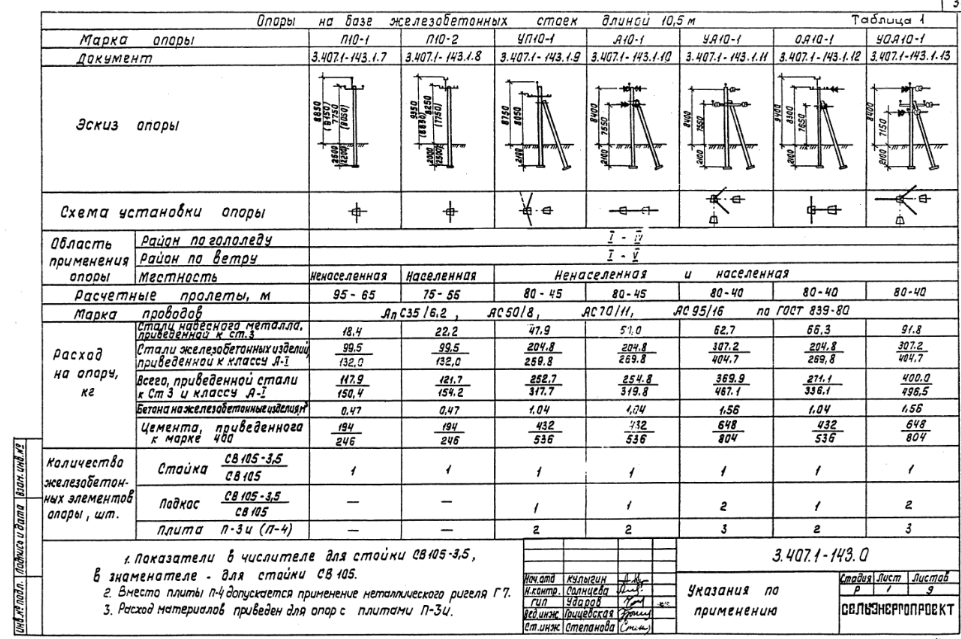 3
Опоры на базе железобетонных стоек длиной 10,5 м Таблица 1
Марка опоры П10-1 П10-2 УП10-1 А10-1 УА10-1 ОА10-1 УОА10-1
Документ 3.407.1-143.1.7 3.407.1-143.1.8 3.407.1-143.1.9 3.407.1-143.1.10 3.407.1-143.1.11 3.407.1-143.1.12 3.407.1-143.1.13
Эскиз опоры
Схема установки опоры
Область применения опоры
Район по гололеду I - IV
Район по ветру I - V
Местность Ненаселенная Населенная Ненаселенная и населенная
Расчетные пролеты, м 95-65 75-55 80-45 80-45 80-40 80-40 80-40
Марка проводов Ап С35/6.2, АС50/8, АС70/11, АС95/16 по ГОСТ 839-80
Расход на опору, кг
Стали навесного металла, приведенной к ст.3 18,4 22,2 47,9 51,0 62.7 66,3 91.8
Стали железобетонных изделий, приведенной к классу А-I 99.5 99.5 204.8 204.8 307.2 204.8 307.2
132,0 132,0 269.8 269.8 404.7 269,8 404.7
Всего, приведенной стали к Ст 3 и классу А-I 117.9 121.7 252,7 254.8 369.9 271.1 400.0
150,4 154.2 317.7 319.8 467.1 336.1 496,5
Бетона на железобетонные изделия, м³ 0,47 0,47 1.04 1,04 1,56 1,04 1,56
Цемента, приведенного к марке 400 194 194 432 432 648 432 648
246 246 536 536 804 536 804
Количество железобетонных элементов опоры, шт.
Стойка СВ 105-3,5 1 1 1 1 1 1 1
СВ 105
Подкос СВ 105-3,5 — — 1 1 2 1 2
СВ 105
Плита П-3и (П-4) — — 2 2 3 2 3
1. Показатели в числителе для стойки СВ105-3,5,
в знаменателе - для стойки СВ 105.
2. Вместо плиты П-4 допускается применение металлического ригеля Г7.
3. Расход материалов приведен для опор с плитами П-3и.
3.407.1-143.0
Нач.отд Кулыгин
Н.контр. Солнцева
ГИП Ударов
Вед.инж. Грицевская
Ст.инж Степанова
Указания по
применению
Стадия Лист Листов
Р 1 9
СЕЛЬЭНЕРГОПРОЕКТ
Инв.№ подл. Подпись и дата Взам.инв.№